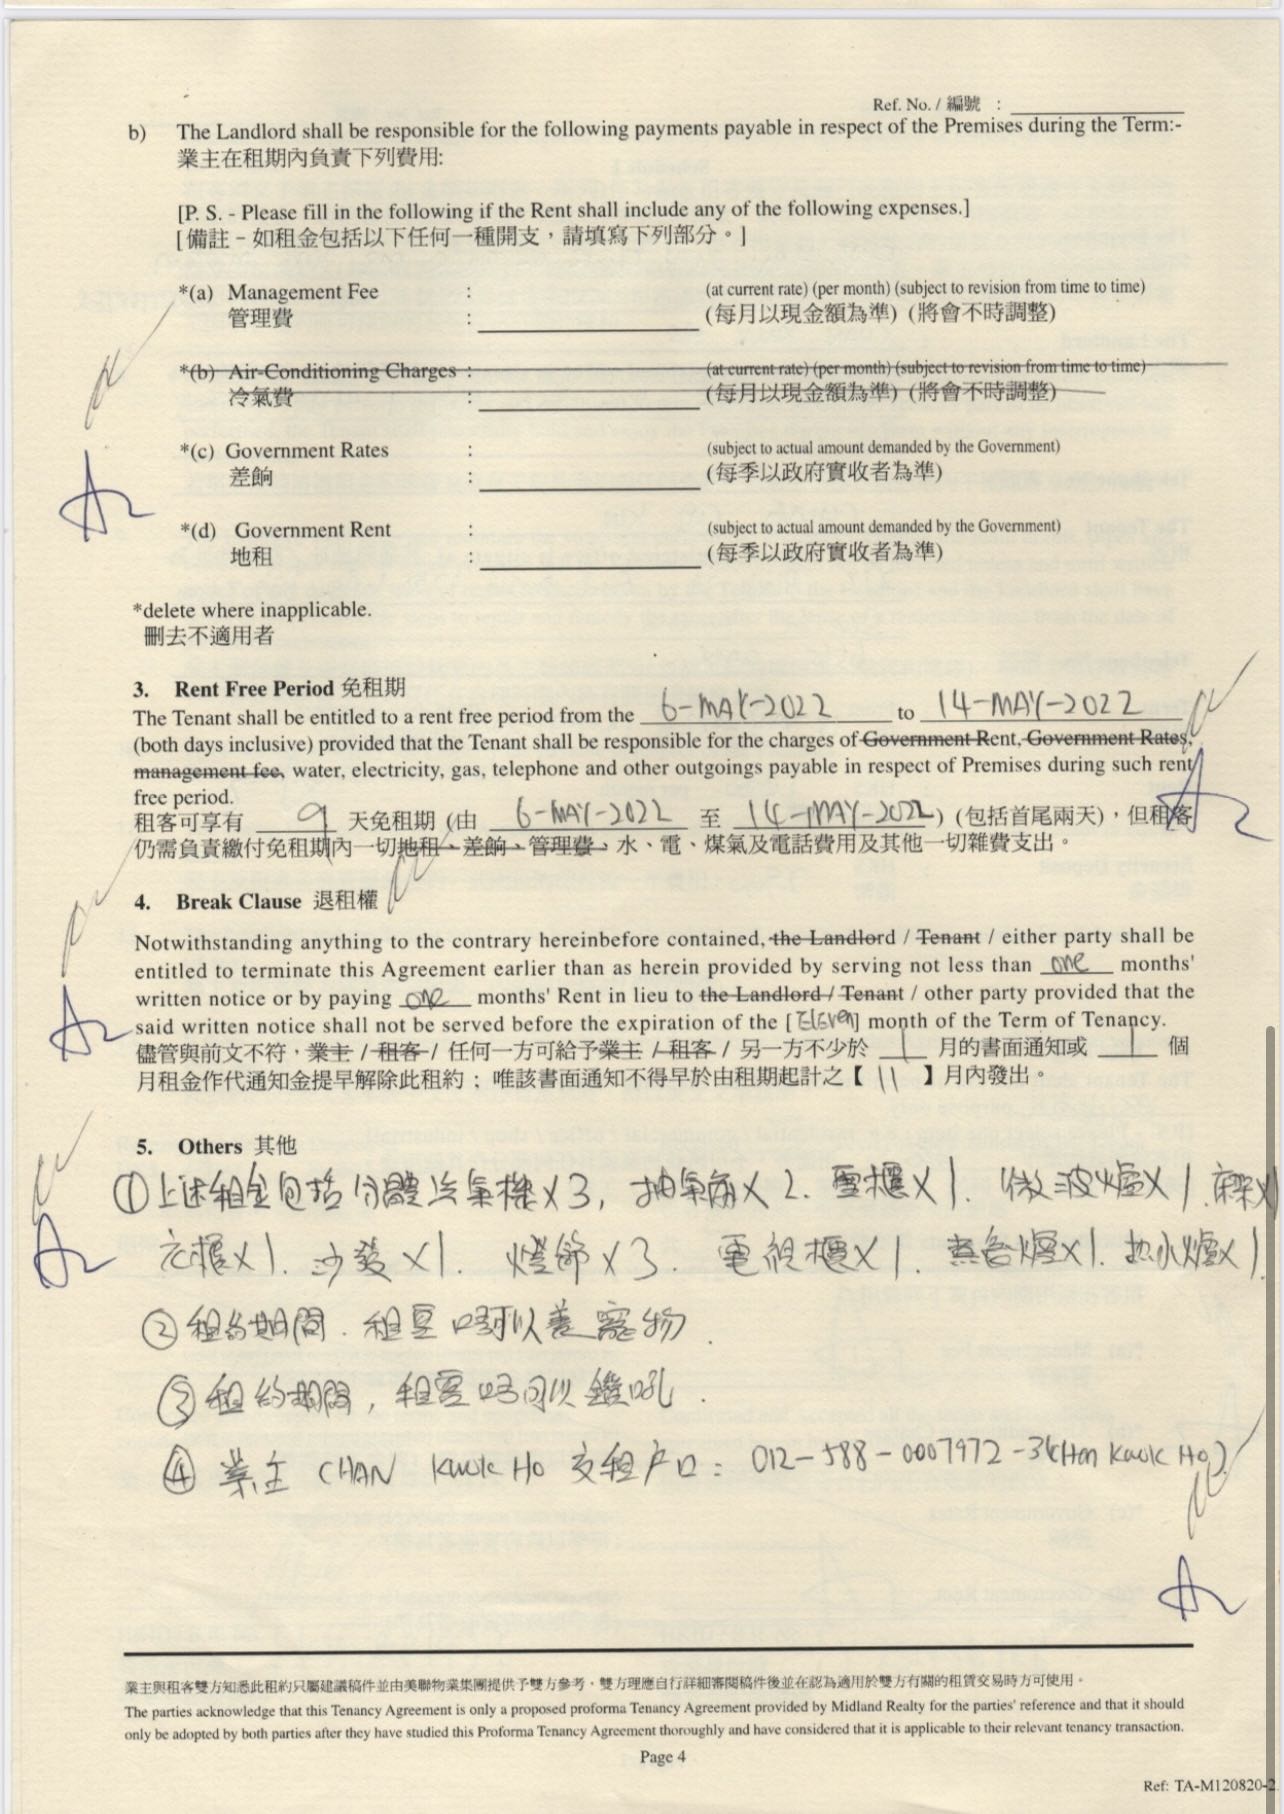 Ref. No. / 編號 :
b) The Landlord shall be responsible for the following payments payable in respect of the Premises during the Term:-
業主在租期內負責下列費用:
[P. S. - Please fill in the following if the Rent shall include any of the following expenses.]
[備註 – 如租金包括以下任何一種開支，請填寫下列部分。]
*(a) Management Fee : (at current rate) (per month) (subject to revision from time to time)
管理費 : (每月以現金額為準) (將會不時調整)
*(b) Air-Conditioning Charges : (at current rate) (per month) (subject to revision from time to time)
冷氣費 : (每月以現金額為準) (將會不時調整)
*(c) Government Rates : (subject to actual amount demanded by the Government)
差餉 : (每季以政府實收者為準)
*(d) Government Rent : (subject to actual amount demanded by the Government)
地租 : (每季以政府實收者為準)
*delete where inapplicable.
刪去不適用者
3. Rent Free Period 免租期
The Tenant shall be entitled to a rent free period from the 6-MAY-2022 to 14-MAY-2022
(both days inclusive) provided that the Tenant shall be responsible for the charges of Government Rent, Government Rates,
management fee, water, electricity, gas, telephone and other outgoings payable in respect of Premises during such rent
free period.
租客可享有 9 天免租期 (由 6-MAY-2022 至 14-MAY-2022) (包括首尾兩天)，但租客
仍需負責繳付免租期內一切地租、差餉、管理費、水、電、煤氣及電話費用及其他一切雜費支出。
4. Break Clause 退租權
Notwithstanding anything to the contrary hereinbefore contained, the Landlord / Tenant / either party shall be
entitled to terminate this Agreement earlier than as herein provided by serving not less than one months'
written notice or by paying one months' Rent in lieu to the Landlord / Tenant / other party provided that the
said written notice shall not be served before the expiration of the [Eleven] month of the Term of Tenancy.
儘管與前文不符，業主 / 租客 / 任何一方可給予業主 / 租客 / 另一方不少於 1 月的書面通知或 1 個
月租金作代通知金提早解除此租約；唯該書面通知不得早於由租期起計之【 11 】月內發出。
5. Others 其他
① 上述租金包括分體冷氣機x3, 抽氣扇x2. 雪櫃x1. 微波爐x1. 床架x
衣櫃x1. 沙發x1. 燈飾x3. 電視櫃x1. 煮食爐x1. 热水爐x1.
② 租約期間. 租客唔可以養寵物.
③ 租約期間, 租客唔可以鑽吼.
④ 業主 CHAN KWOK HO 交租戶口: 012-588-0007972-3 (CHan KWOK HO)
業主與租客雙方知悉此租約只屬建議稿件並由美聯物業集團提供予雙方參考。雙方理應自行詳細審閱稿件後並在認為適用於雙方有關的租賃交易時方可使用。
The parties acknowledge that this Tenancy Agreement is only a proposed proforma Tenancy Agreement provided by Midland Realty for the parties' reference and that it should
only be adopted by both parties after they have studied this Proforma Tenancy Agreement thoroughly and have considered that it is applicable to their relevant tenancy transaction.
Page 4
Ref: TA-M120820-2